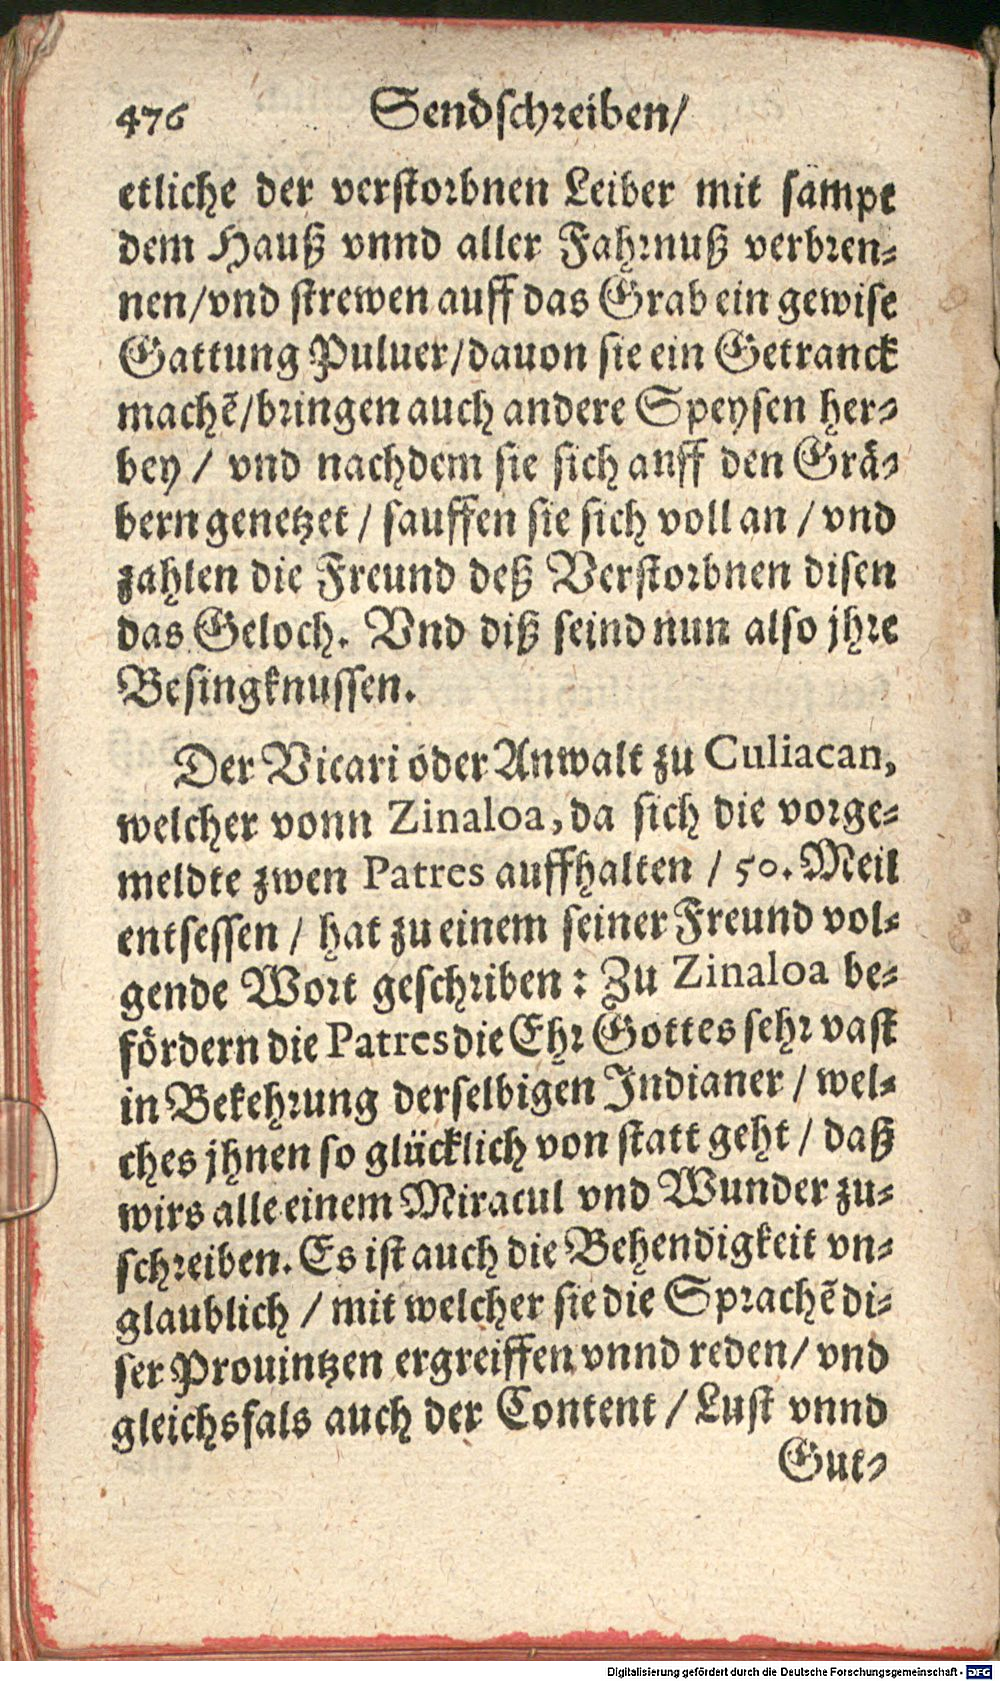 476 Sendschreiben/
etliche der verstorbnen Leiber mit sampt
dem Hauß vnnd aller Fahrnuß verbren-
nen/vnd strewen auff das Grab ein gewise
Gattung Puluer/dauon sie ein Getranck
machẽ/bringen auch andere Speysen her-
bey / vnd nachdem sie sich auff den Grä-
bern genetzet / sauffen sie sich voll an / vnd
zahlen die Freund deß Verstorbnen disen
das Geloch. Vnd diß seind nun also jhre
Besingknussen.
Der Vicari oder Anwalt zu Culiacan,
welcher vonn Zinaloa, da sich die vorge-
meldte zwen Patres auffhalten / 50. Meil
entsessen / hat zu einem seiner Freund vol-
gende Wort geschriben: Zu Zinaloa be-
fördern die Patres die Ehr Gottes sehr vast
in Bekehrung derselbigen Indianer / wel-
ches jhnen so glücklich von statt geht / daß
wirs alle einem Miracul vnd Wunder zu-
schreiben. Es ist auch die Behendigkeit vn-
glaublich / mit welcher sie die Sprachẽ di-
ser Prouintzen ergreiffen vnnd reden/ vnd
gleichsfals auch der Content / Lust vnnd
Gut-
Digitalisierung gefördert durch die Deutsche Forschungsgemeinschaft - DFG